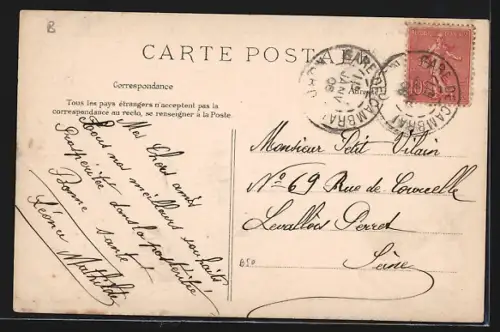 B
CARTE POSTALE
Correspondance
Tous les pays étrangers n'acceptent pas la
correspondance au recto, se renseigner à la Poste.
Mes Chers amis
Recevez nos meilleurs souhaits
Prospérité dans la postérité
Bonne santé
Léonie Mathilde
GARE DE CAMBRAI
GARE DE CAMBRAI
10
Monsieur Petit Vilain
N° 69 Rue de Courcelle
Levallois Perret
Seine